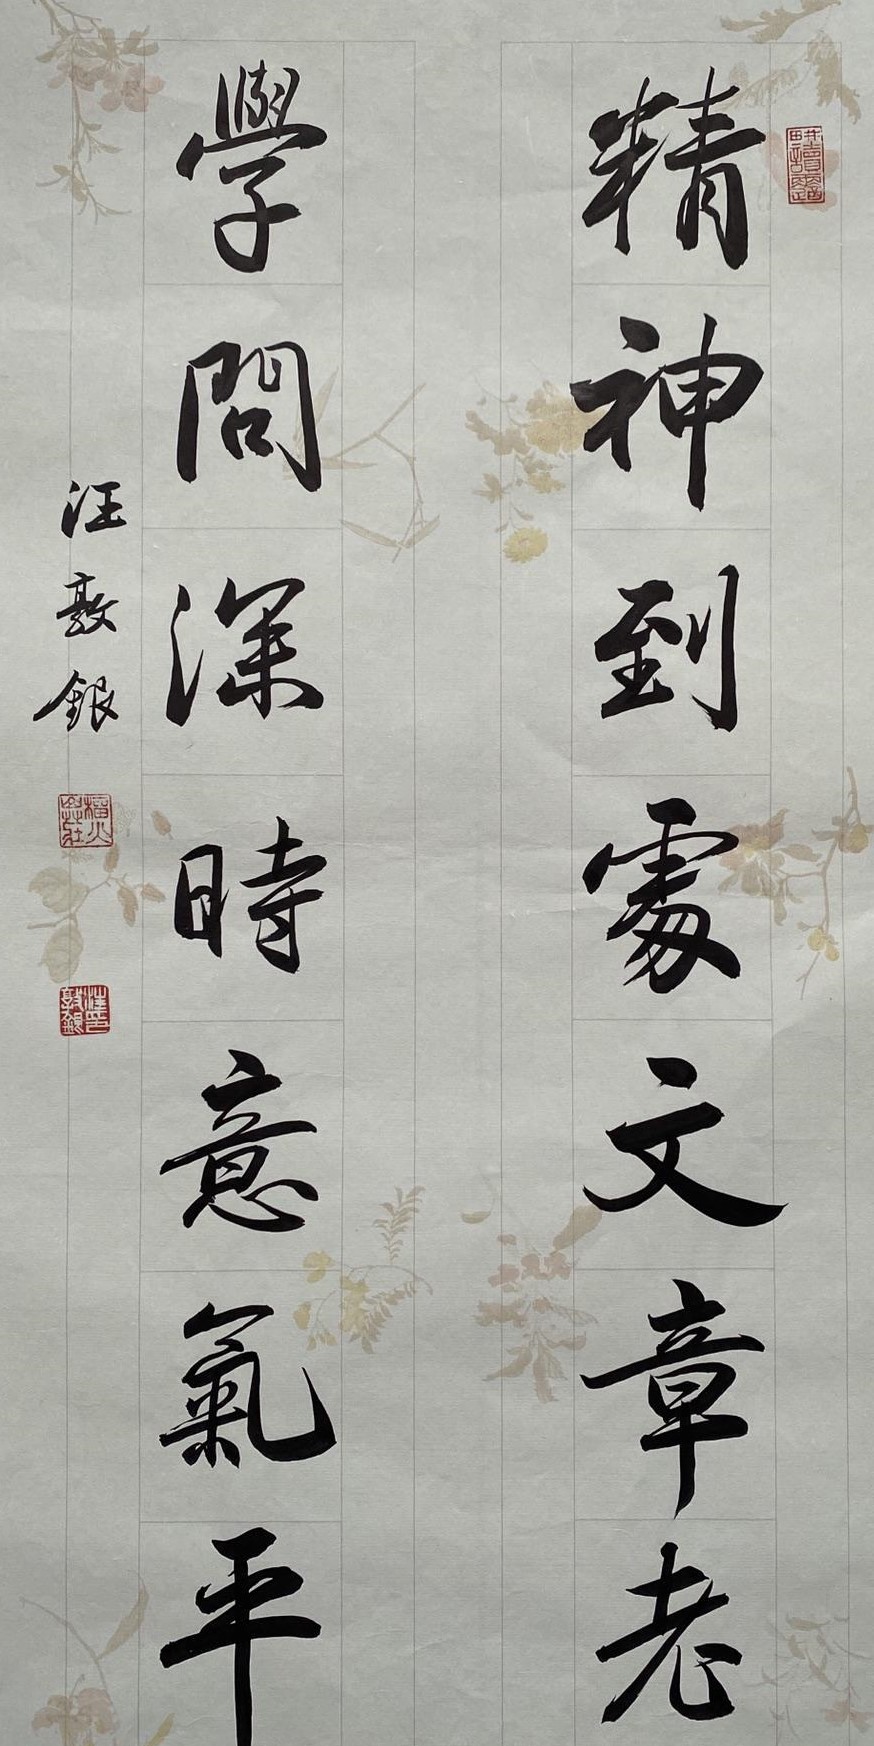 精神到處文章老
學問深時意氣平
汪敦銀